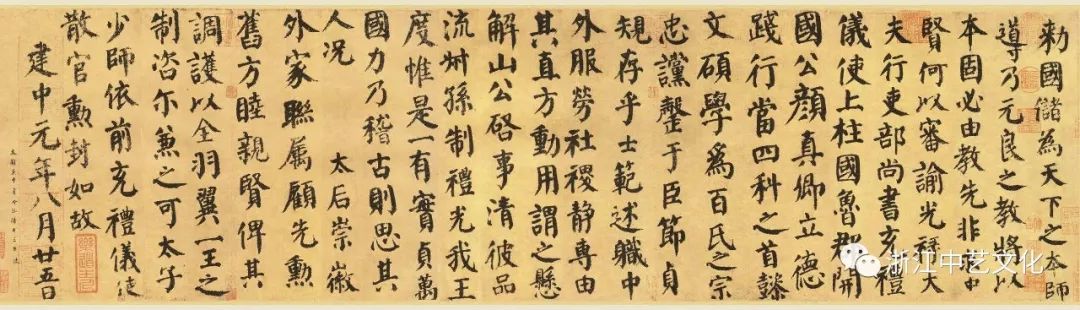 勅國儲為天下之本師
導乃元良之教將以
本固必由教先非求中
賢何以審諭光祿大
夫行吏部尚書充禮
儀使上柱國魯郡開
國公顏真卿立德
踐行當四科之首懿
文碩學爲百氏之宗
忠讜罄于臣節貞
規存乎士範述職中
外服勞社稷靜專由
其直方動用謂之懸
解山公啓事清彼品
流叔孫制禮光我王
度惟是一有實貞萬
國力乃稽古則思其
人況 太后崇徽
外家聯屬顧先勳
舊方睦親賢俾其
調護以全羽翼一王之
制咨尔兼之可太子
少師依前充禮儀使
散官勳封如故
建中元年八月廿五日
浙江中艺文化